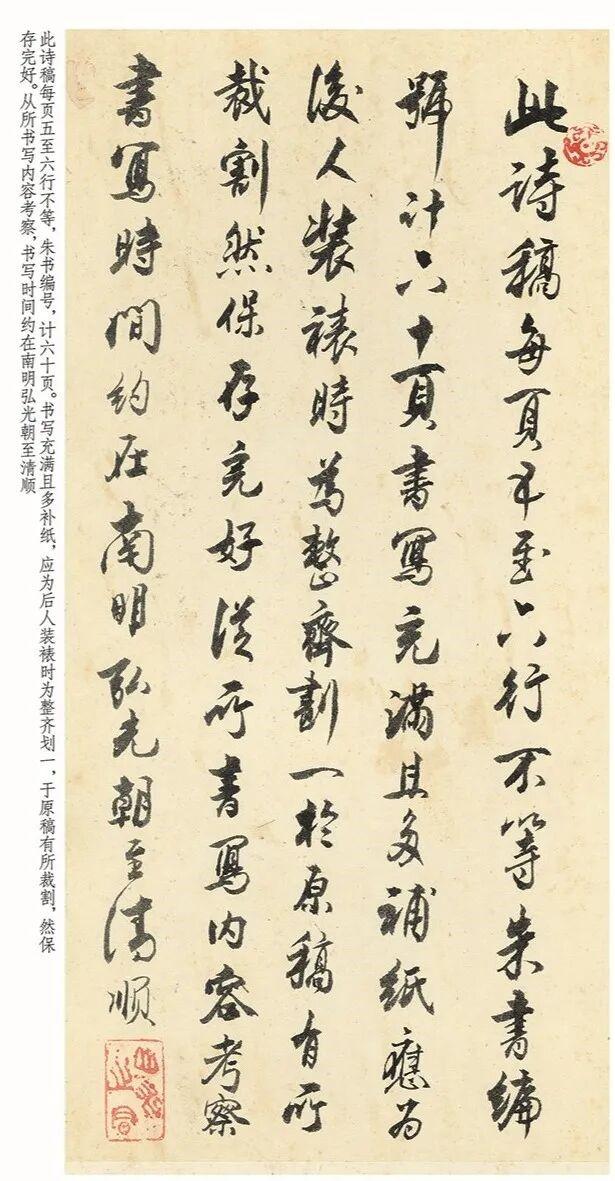 此詩稿每頁五至六行不等朱書編
號計六十頁書寫充滿且多補紙應为
後人裝裱時為整齊劃一於原稿有所
裁割然保存完好從所書寫内容考察
書寫時間约在南明弘光朝至清順
此诗稿每页五至六行不等，朱书编号，计六十页。书写充满且多补纸，应为后人装裱时为整齐划一，于原稿有所裁割，然保
存完好。从所书写内容考察，书写时间约在南明弘光朝至清顺